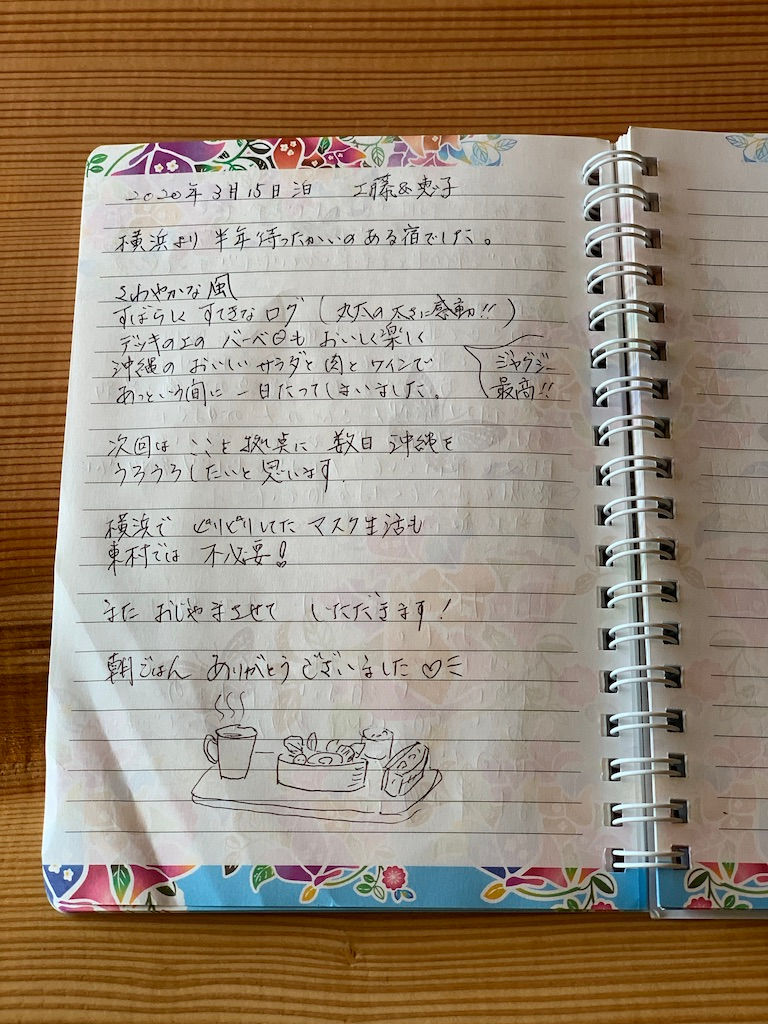 2020年3月15日泊 工藤&恵子
横浜より 半年待ったかいのある宿でした。
さわやかな風
すばらしく すてきなログ (丸太の太さに感動!!)
デッキの上の バーベQも おいしく楽しく
沖縄の おいしい サラダと 肉と ワインで
あっという間に 一日たってしまいました。
ジャグジー
最高!!
次回は ここを 拠点に 数日 沖縄を
うろうろしたいと思います
横浜で ピリピリしてた マスク生活も
東村では 不必要!
また おじゃまさせて いただきます!
朝ごはん ありがとう ございました♡